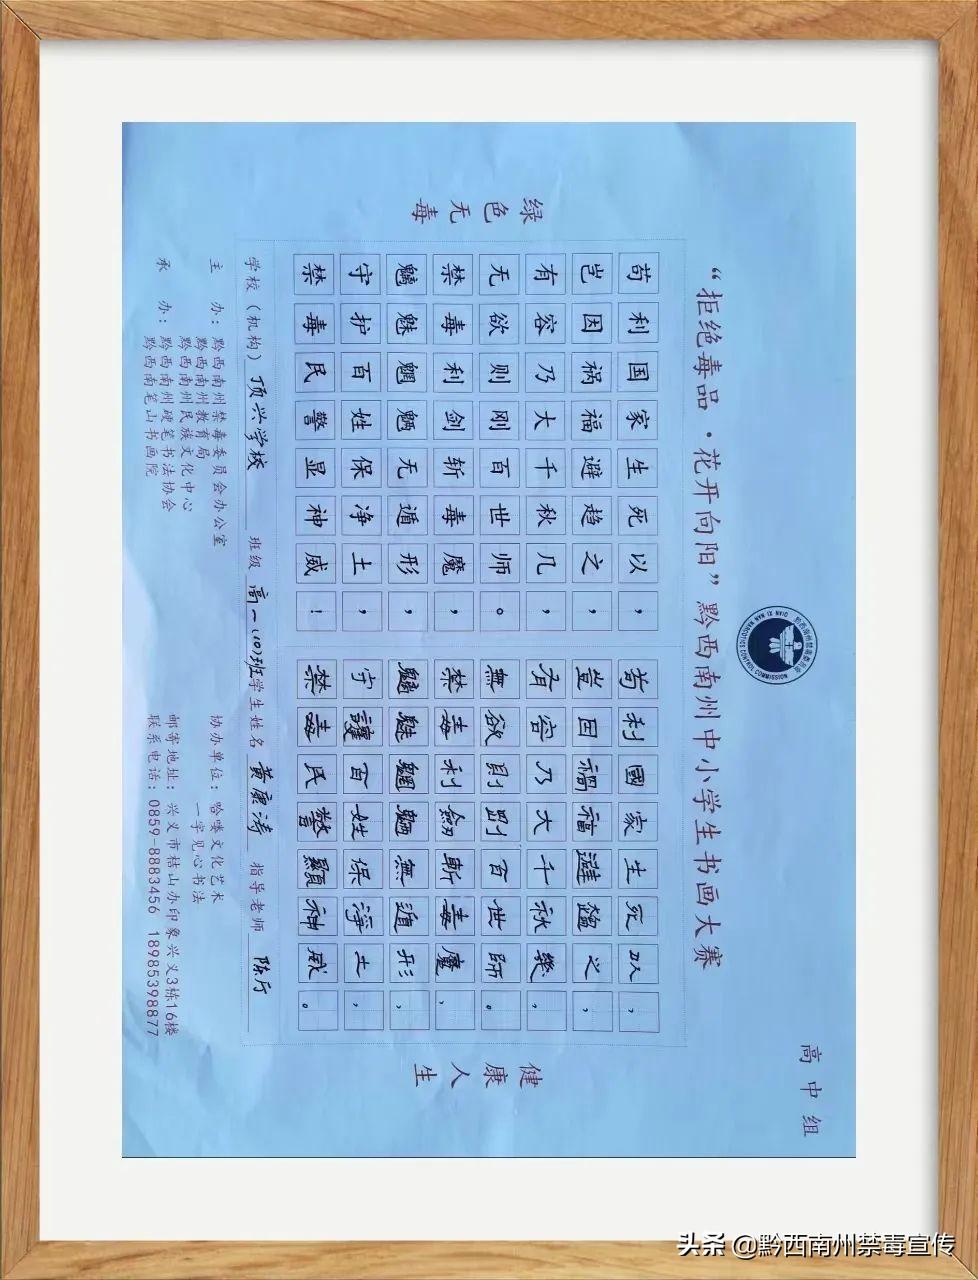 高中组
QIAN XI NAN NARCOTICS CONTROL COMMISSION
“拒绝毒品·花开向阳”黔西南州中小学生书画大赛
绿色无毒
苟利国家生死以，
岂因祸福避趋之，
有容乃大千秋几，
无欲则刚百世师。
禁毒利剑斩毒魔，
魑魅魍魉无遁形，
守护百姓保净土，
禁毒民警显神威！
苟利國家生死以，
豈因禍福避趨之，
有容乃大千秋幾，
無欲則剛百世師。
禁毒利劍斬毒魔，
魑魅魍魎無遁形，
守護百姓保淨土，
禁毒民警顯神威。
健康人生
学校（机构）顶兴学校 班级 高一(10)班 学生姓名 黄康涛 指导老师 陈厅
主 办：黔西南州禁毒委员会办公室
黔西南州教育局
黔西南州民族文化中心
承 办：黔西南州硬笔书法协会
黔西南笔山书画院
协办单位：哈喽文化艺术
一字见心书法
邮寄地址：兴义市桔山办印象兴义3栋16楼
联系电话：0859-8883456 18985398877
头条 @黔西南州禁毒宣传